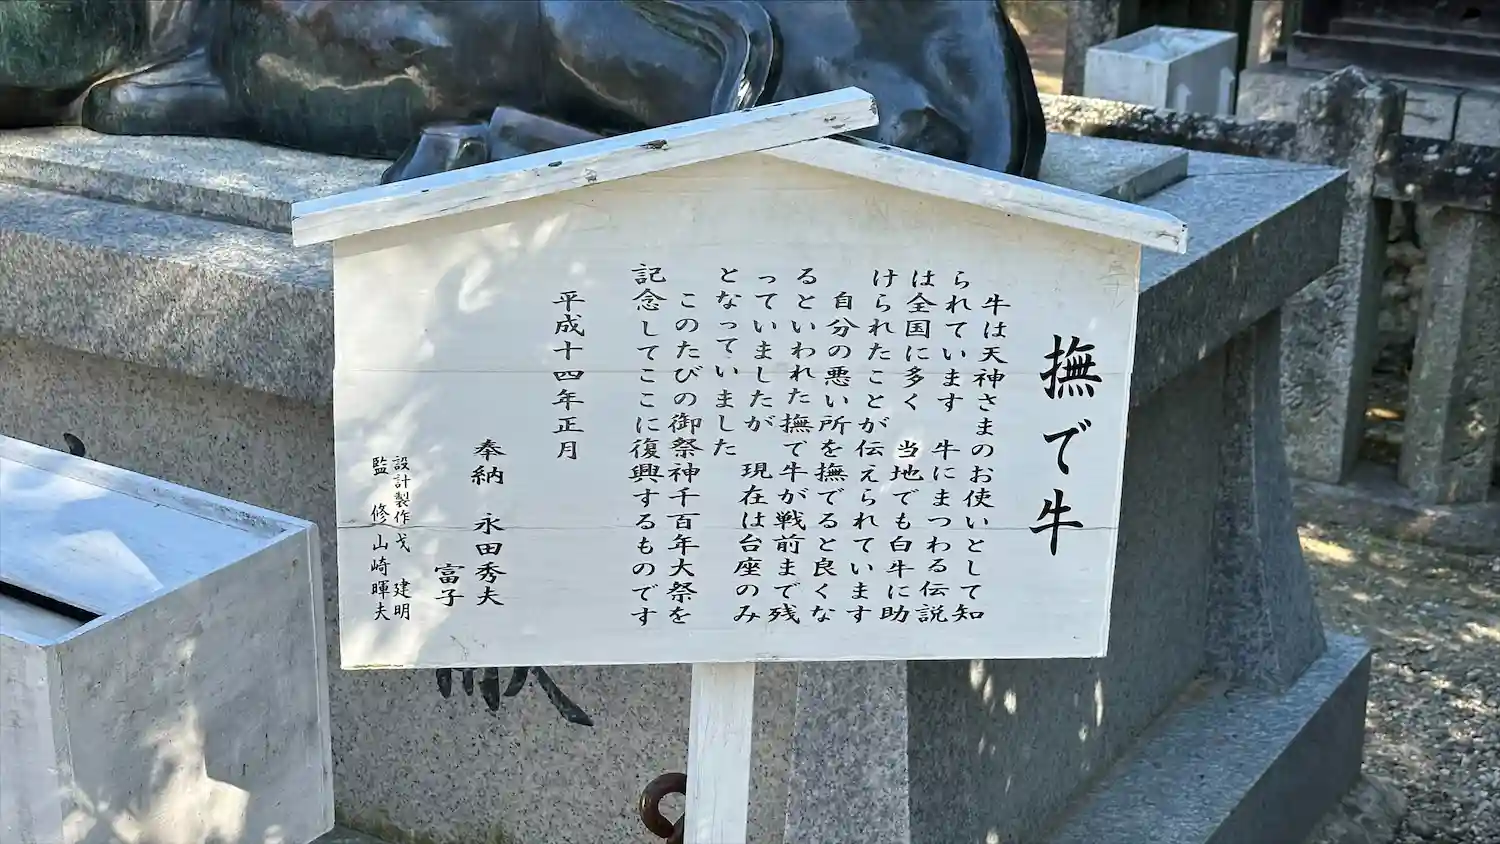 撫で牛
牛は天神さまのお使いとして知
られています　牛にまつわる伝説
は全国に多く　当地でも白牛に助
けられたことが伝えられています
自分の悪い所を撫でると良くな
るといわれた撫で牛が戦前まで残
っていましたが　現在は台座のみ
となっていました
このたびの御祭神千百年大祭を
記念してここに復興するものです
平成十四年正月
奉納　永田秀夫
富子
設計製作　戈　建明
監　修　山崎暉夫
献